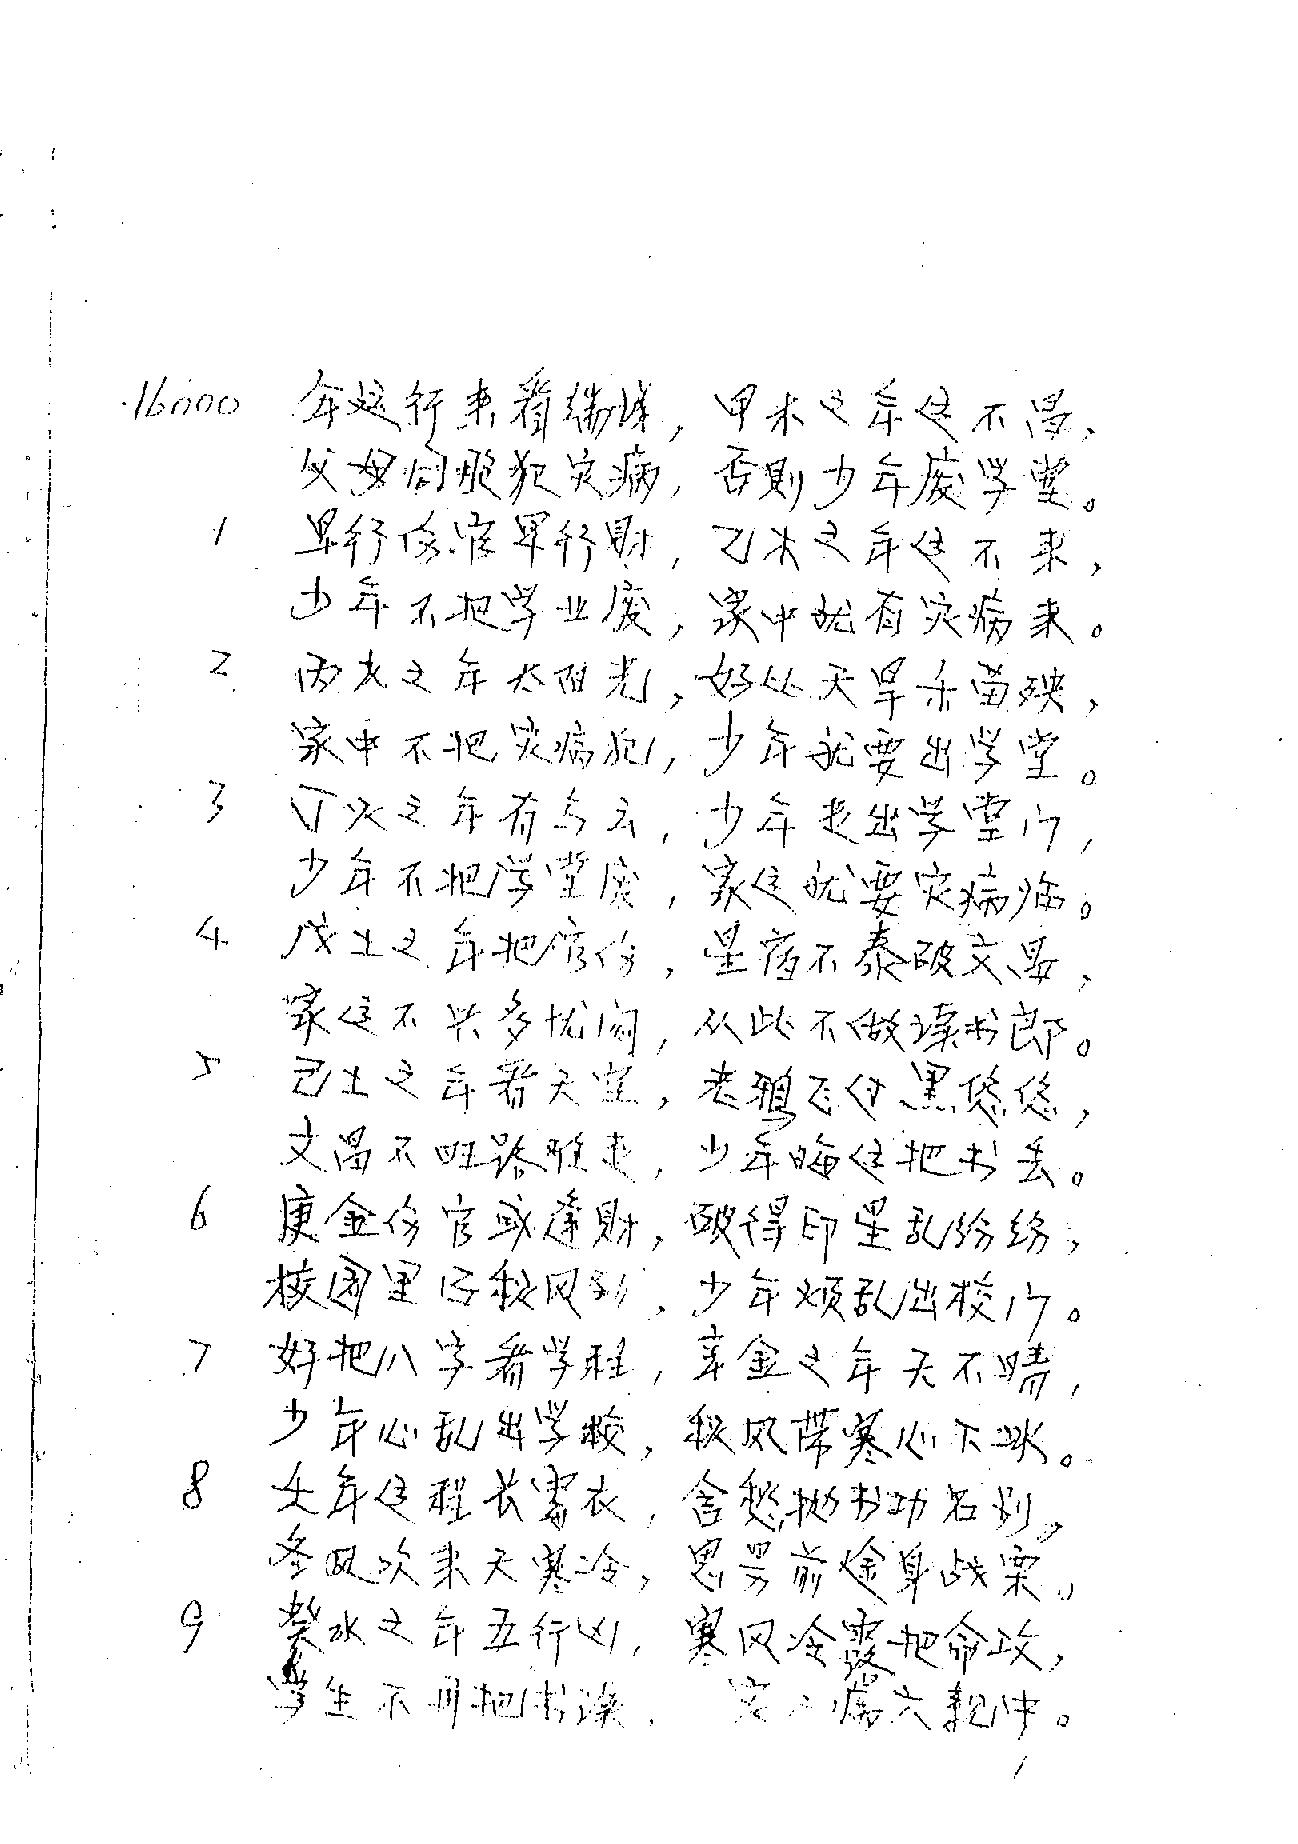 16000 年运行来看端详，甲木之年运不昌，
父母伺服犯灾病，否则少年废学堂。
1 早行伤官早行财，乙木之年运不来，
少年不把学业废，家中就有灾病来。
2 丙火之年太阳光，好比天旱禾苗殃，
家中不把灾病犯，少年就要出学堂。
3 丁火之年有乌云，少年走出学堂门，
少年不把学堂废，家运就要灾病临。
4 戊土之年把官伤，星宿不泰破文昌，
家运不兴多忧闷，从此不做读书郎。
5 己土之年看天空，老鸦飞过黑悠悠，
文昌不旺路难走，少年晦运把书丢。
6 庚金伤官或逢财，破得印星乱纷纷，
校园里已秋风到，少年烦乱出校门。
7 好把八字看学程，辛金之年天不晴，
少年心乱出学校，秋风带寒心下冰。
8 壬年运程长霉衣，含愁抛书功名别，
冬风吹来天寒冷，思男前途身战栗。
9 癸水之年五行凶，寒风冷露把命攻，
学生不再把书读，灾病六亲冲。
1